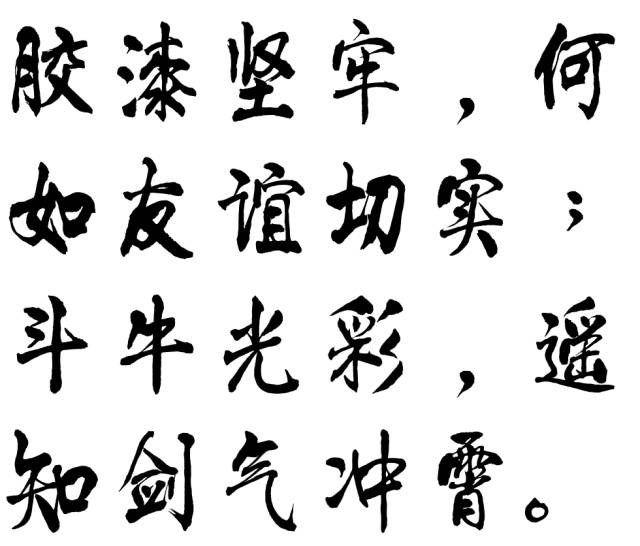 胶漆坚牢，何
如友谊切实；
斗牛光彩，遥
知剑气冲霄。